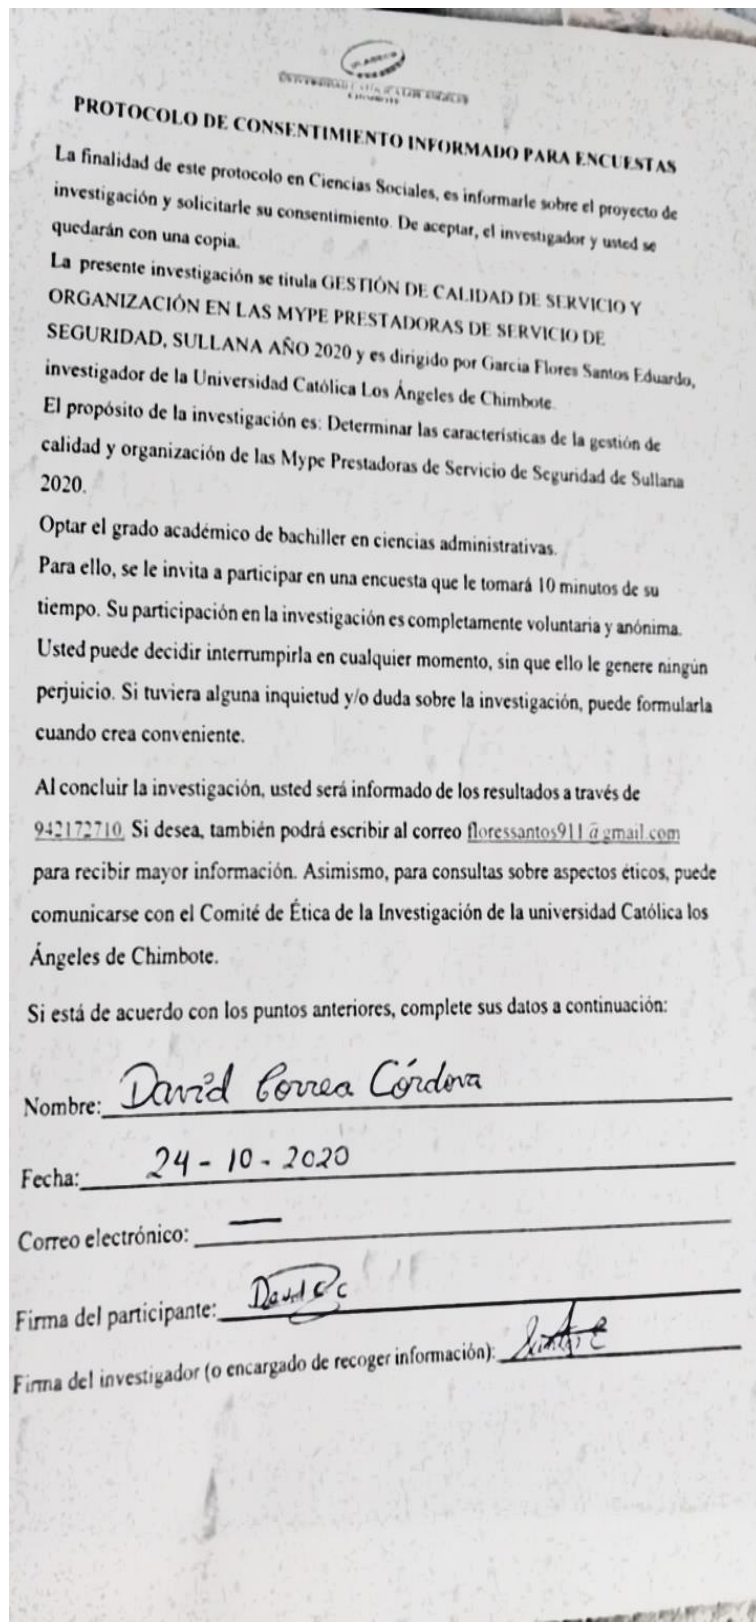 ULADECH
UNIVERSIDAD CATÓLICA LOS ÁNGELES
CHIMBOTE
PROTOCOLO DE CONSENTIMIENTO INFORMADO PARA ENCUESTAS
La finalidad de este protocolo en Ciencias Sociales, es informarle sobre el proyecto de
investigación y solicitarle su consentimiento. De aceptar, el investigador y usted se
quedarán con una copia.
La presente investigación se titula GESTIÓN DE CALIDAD DE SERVICIO Y
ORGANIZACIÓN EN LAS MYPE PRESTADORAS DE SERVICIO DE
SEGURIDAD, SULLANA AÑO 2020 y es dirigido por Garcia Flores Santos Eduardo,
investigador de la Universidad Católica Los Ángeles de Chimbote.
El propósito de la investigación es: Determinar las características de la gestión de
calidad y organización de las Mype Prestadoras de Servicio de Seguridad de Sullana
2020.
Optar el grado académico de bachiller en ciencias administrativas.
Para ello, se le invita a participar en una encuesta que le tomará 10 minutos de su
tiempo. Su participación en la investigación es completamente voluntaria y anónima.
Usted puede decidir interrumpirla en cualquier momento, sin que ello le genere ningún
perjuicio. Si tuviera alguna inquietud y/o duda sobre la investigación, puede formularla
cuando crea conveniente.
Al concluir la investigación, usted será informado de los resultados a través de
942172710. Si desea, también podrá escribir al correo floressantos911@gmail.com
para recibir mayor información. Asimismo, para consultas sobre aspectos éticos, puede
comunicarse con el Comité de Ética de la Investigación de la universidad Católica los
Ángeles de Chimbote.
Si está de acuerdo con los puntos anteriores, complete sus datos a continuación:
Nombre: David Correa Córdova
Fecha: 24 - 10 - 2020
Correo electrónico: —
Firma del participante: David C C
Firma del investigador (o encargado de recoger información):